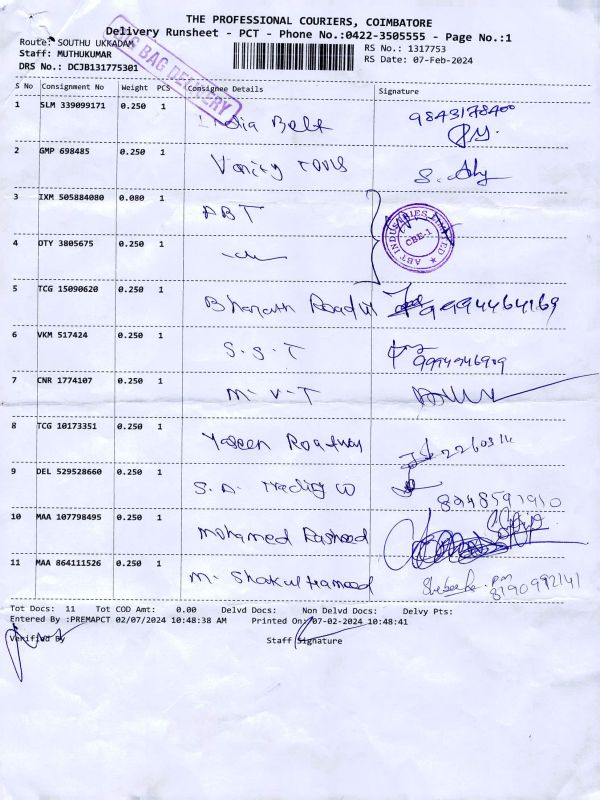 THE PROFESSIONAL COURIERS, COIMBATORE
Delivery Runsheet - PCT - Phone No.:0422-3505555 - Page No.:1
Route: SOUTHU UKKADAM
RS No.: 1317753
Staff: MUTHUKUMAR
RS Date: 07-Feb-2024
DRS No.: DCJB131775301
BAG DELIVERY
S No Consignment No Weight PCS Consignee Details Signature
1 SLM 339099171 0.250 1 India Belt 9843178400
2 GMP 698485 0.250 1 Vanity Tools
3 IXM 505884080 0.080 1 ABT
ABT INDUSTRIES LIMITED ★ CBE-1
4 OTY 3805675 0.250 1
5 TCG 15090620 0.250 1 Bharath Roadways 9994464169
6 VKM 517424 0.250 1 S.S.T 9994946909
7 CNR 1774107 0.250 1 M-V-T
8 TCG 10173351 0.250 1 Yaseen Roadway
9 DEL 529528660 0.250 1 S.A. Trading Co 8248591910
10 MAA 107798495 0.250 1 Mohamed Rasheed
11 MAA 864111526 0.250 1 M. Shakul Hameed 8190992141
Tot Docs: 11 Tot COD Amt: 0.00 Delvd Docs: Non Delvd Docs: Delvy Pts:
Entered By :PREMAPCT 02/07/2024 10:48:38 AM Printed On:07-02-2024 10:48:41
Verified By Staff Signature